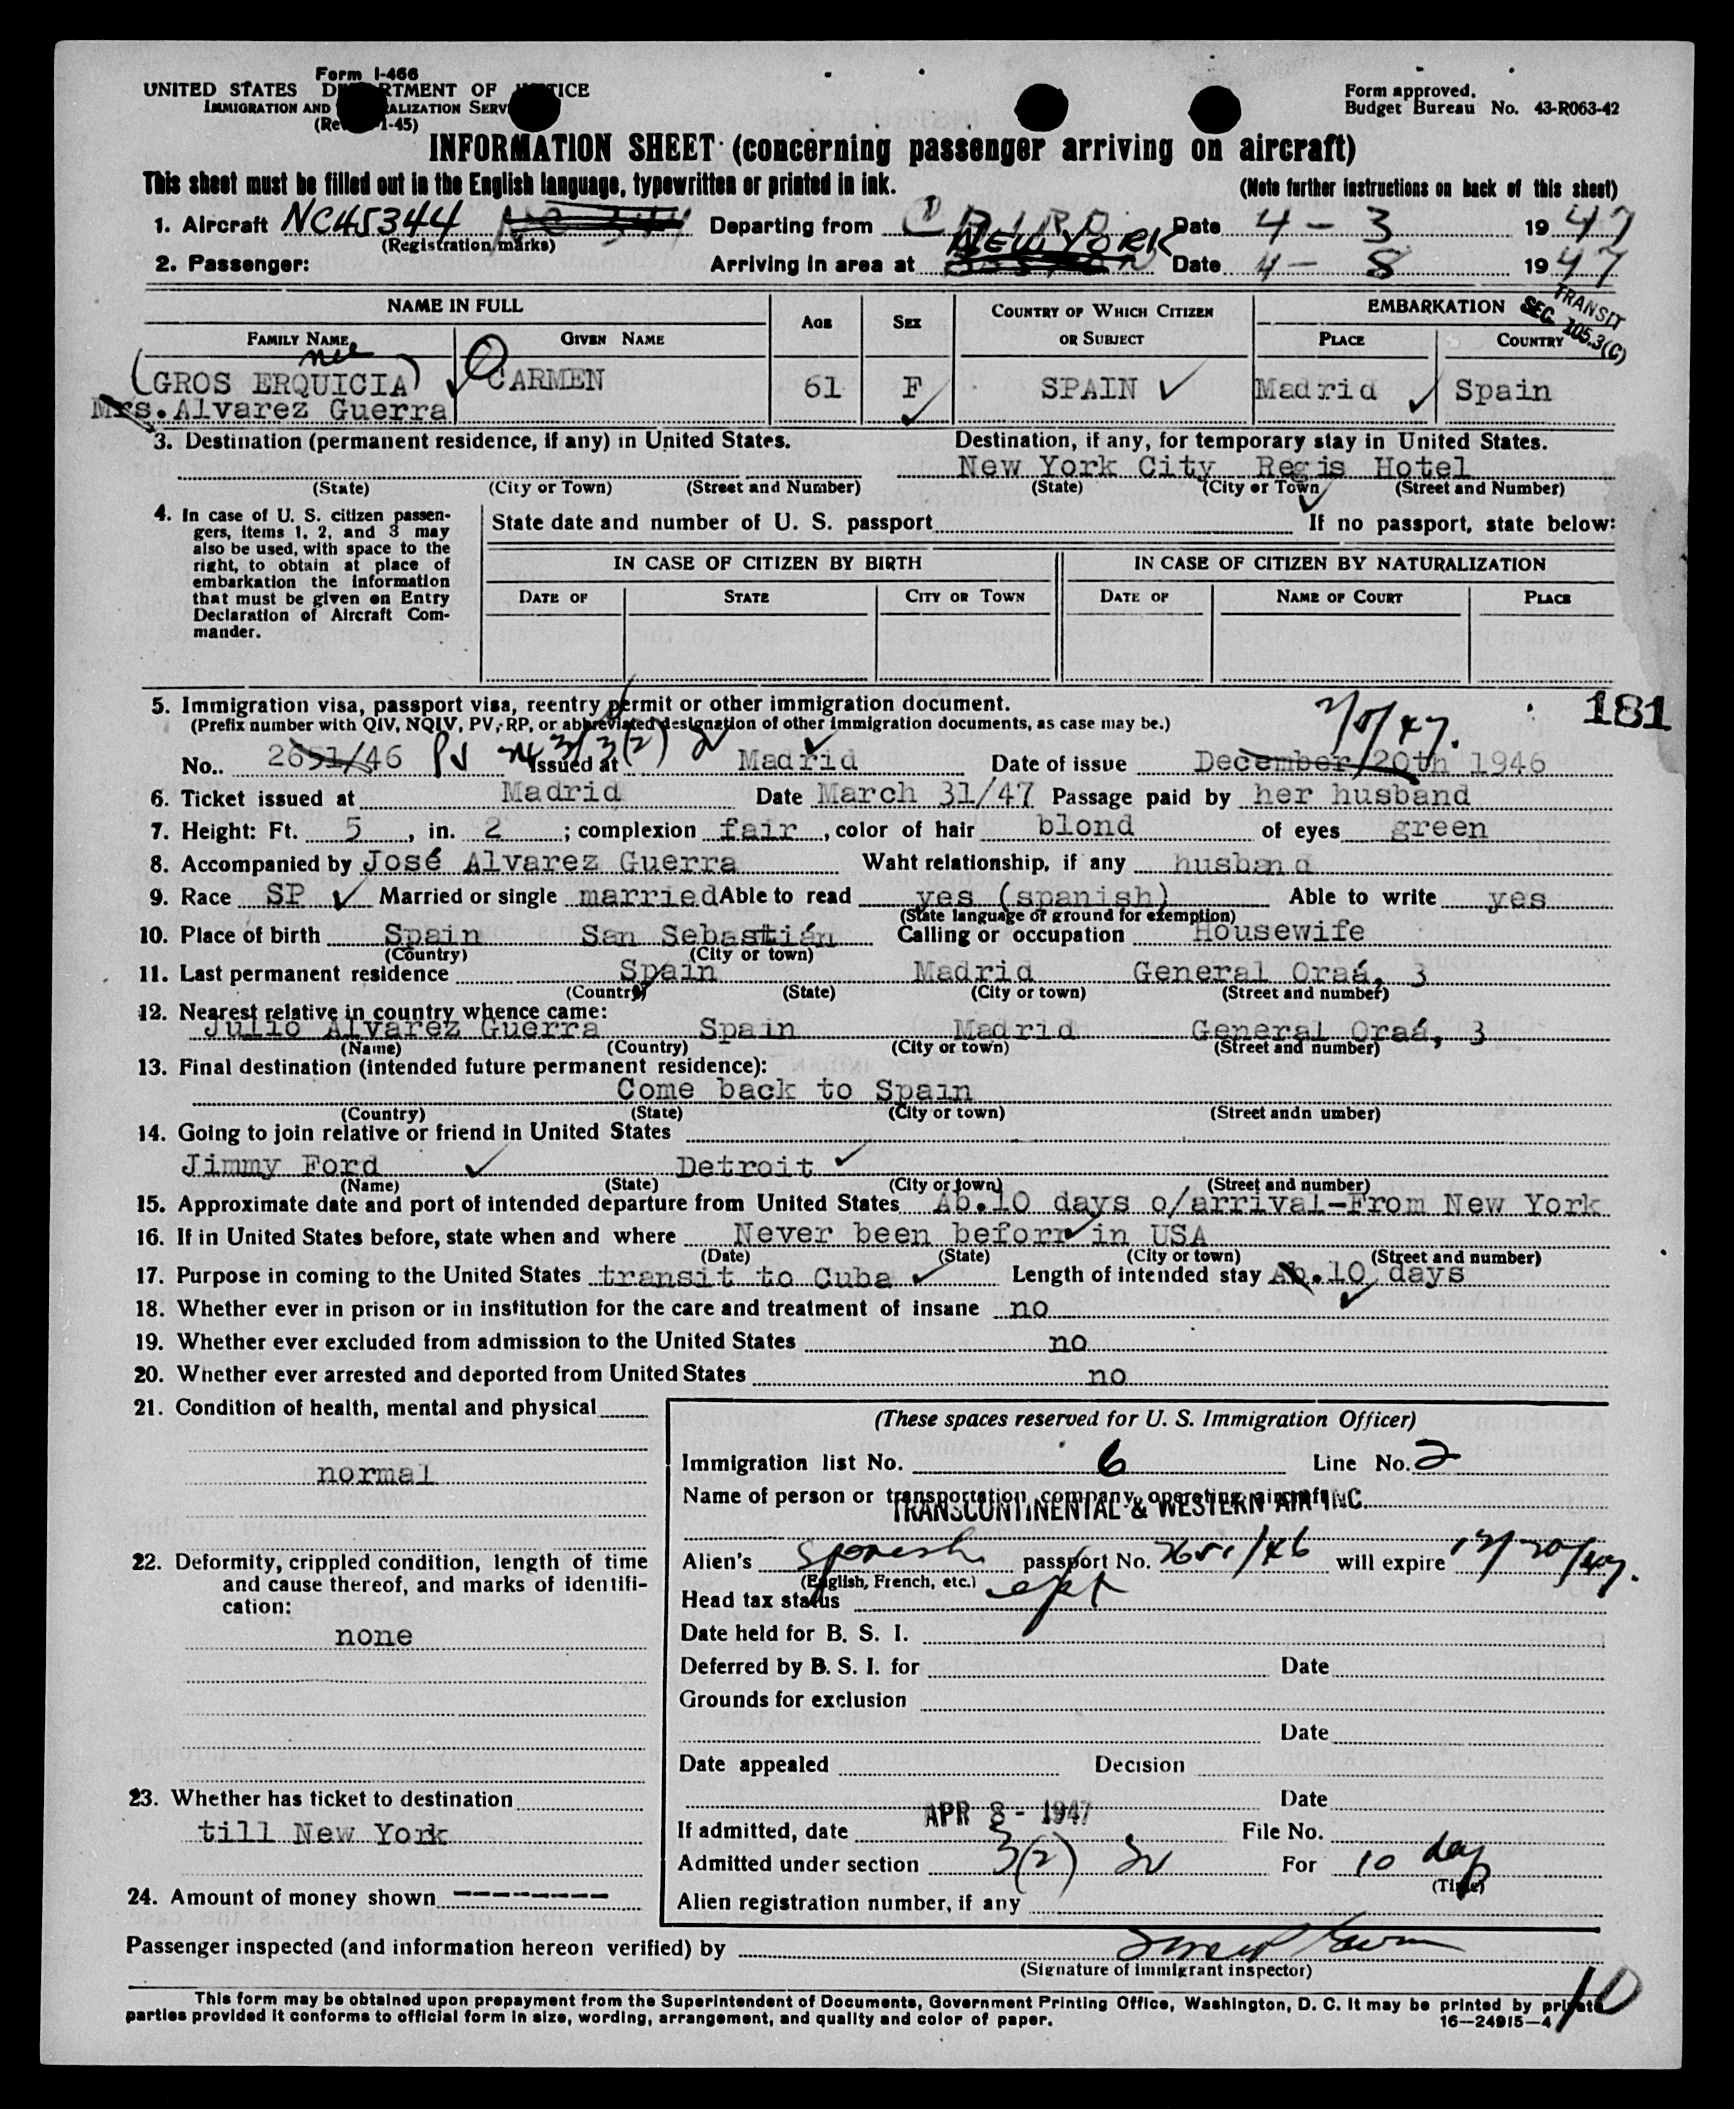 Form I-466
UNITED STATES DEPARTMENT OF JUSTICE
IMMIGRATION AND NATURALIZATION SERVICE
(Rev. 1-45)
Form approved.
Budget Bureau No. 43-R063-42
INFORMATION SHEET (concerning passenger arriving on aircraft)
This sheet must be filled out in the English language, typewritten or printed in ink. (Note further instructions on back of this sheet)
1. Aircraft NC45344 Departing from CAIRO Date 4-3 1947
(Registration marks)
2. Passenger: Arriving in area at NEW YORK Date 4-8 1947
TRANSIT
SEC. 105.3(C)
NAME IN FULL AGE SEX COUNTRY OF WHICH CITIZEN OR SUBJECT EMBARKATION
FAMILY NAME GIVEN NAME PLACE COUNTRY
nee
(GROS ERQUICIA) CARMEN 61 F SPAIN Madrid Spain
Mrs. Alvarez Guerra
3. Destination (permanent residence, if any) in United States. Destination, if any, for temporary stay in United States.
New York City Regis Hotel
(State) (City or Town) (Street and Number) (State) (City or Town) (Street and Number)
4. In case of U. S. citizen passen-
gers, items 1, 2, and 3 may
also be used, with space to the
right, to obtain at place of
embarkation the information
that must be given on Entry
Declaration of Aircraft Com-
mander.
State date and number of U. S. passport If no passport, state below:
IN CASE OF CITIZEN BY BIRTH IN CASE OF CITIZEN BY NATURALIZATION
DATE OF STATE CITY OR TOWN DATE OF NAME OF COURT PLACE
5. Immigration visa, passport visa, reentry permit or other immigration document.
(Prefix number with QIV, NQIV, PV, RP, or abbreviated designation of other immigration documents, as case may be.)
181
No.. 2651/46 PV 3(2) Issued at Madrid Date of issue December 20th 1946
6. Ticket issued at Madrid Date March 31/47 Passage paid by her husband
7. Height: Ft. 5, in. 2; complexion fair, color of hair blond of eyes green
8. Accompanied by José Alvarez Guerra Waht relationship, if any husband
9. Race SP Married or single married Able to read yes (spanish) Able to write yes
(State language or ground for exemption)
10. Place of birth Spain San Sebastián Calling or occupation Housewife
(Country) (City or town)
11. Last permanent residence Spain Madrid General Oraá, 3
(Country) (State) (City or town) (Street and number)
12. Nearest relative in country whence came:
Julio Alvarez Guerra Spain Madrid General Oraá, 3
(Name) (Country) (City or town) (Street and number)
13. Final destination (intended future permanent residence):
Come back to Spain
(Country) (State) (City or town) (Street andn umber)
14. Going to join relative or friend in United States
Jimmy Ford Detroit
(Name) (State) (City or town) (Street and number)
15. Approximate date and port of intended departure from United States Ab.10 days o/arrival-From New York
16. If in United States before, state when and where Never been beforr in USA
(Date) (State) (City or town) (Street and number)
17. Purpose in coming to the United States transit to Cuba Length of intended stay Ab.10 days
18. Whether ever in prison or in institution for the care and treatment of insane no
19. Whether ever excluded from admission to the United States no
20. Whether ever arrested and deported from United States no
21. Condition of health, mental and physical
normal
22. Deformity, crippled condition, length of time
and cause thereof, and marks of identifi-
cation:
none
23. Whether has ticket to destination
till New York
24. Amount of money shown ---------
(These spaces reserved for U. S. Immigration Officer)
Immigration list No. 6 Line No. 2
Name of person or transportation company operating aircraft
TRANSCONTINENTAL & WESTERN AIR INC.
Alien's Spanish passport No. 2651/46 will expire 12/20/47.
(English, French, etc.)
Head tax status ept
Date held for B. S. I.
Deferred by B. S. I. for Date
Grounds for exclusion
Date
Date appealed Decision
Date
If admitted, date APR 8 - 1947 File No.
Admitted under section 3(2) For 10 days
(Time)
Alien registration number, if any
Passenger inspected (and information hereon verified) by
(Signature of immigrant inspector)
10
This form may be obtained upon prepayment from the Superintendent of Documents, Government Printing Office, Washington, D. C. It may be printed by private
parties provided it conforms to official form in size, wording, arrangement, and quality and color of paper. 16—24915—4